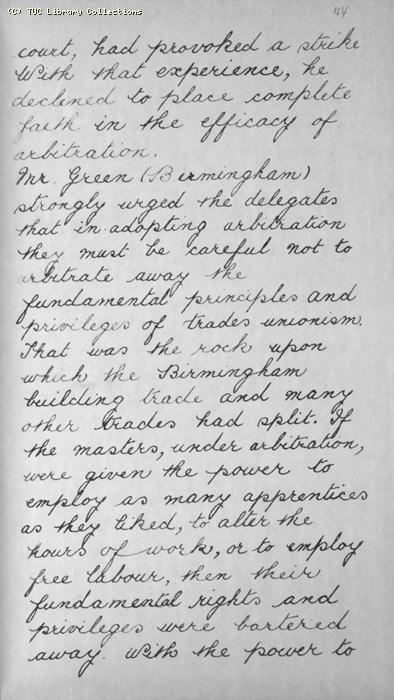 (C) TUC Library Collections
44
court, had provoked a strike
With that experience, he
declined to place complete
faith in the efficacy of
arbitration.
Mr. Green (Birmingham)
strongly urged the delegates
that in adopting arbitration
they must be careful not to
arbitrate away the
fundamental principles and
privileges of trades unionism.
That was the rock upon
which the Birmingham
building trade and many
other trades had split. If
the masters, under arbitration,
were given the power to
employ as many apprentices
as they liked, to alter the
hours of work, or to employ
free labour, then their
fundamental rights and
privileges were bartered
away. With the power to